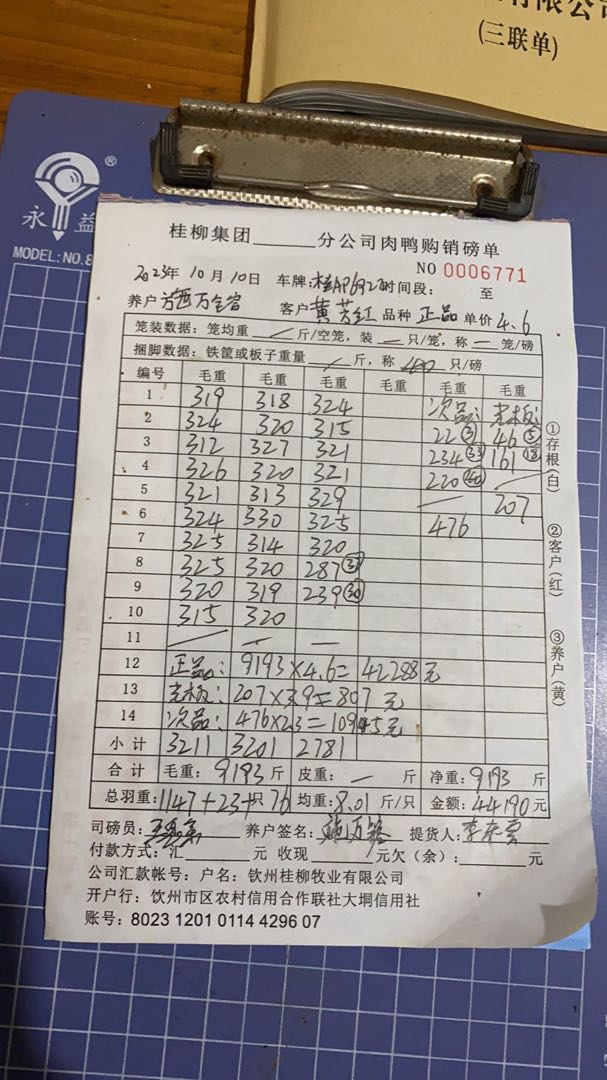 有限公司
(三联单)
永益®
MODEL:NO.8
桂柳集团______分公司肉鸭购销磅单
NO 0006771
2023年10月10日 车牌:桂AP6927时间段: 至
养户 客户 黄芳红 品种 正品 单价 4.6
笼装数据：笼均重 / 斤/空笼，装 — 只/笼，称 — 笼/磅
捆脚数据：铁筐或板子重量 / 斤，称 只/磅
编号 毛重 毛重 毛重 毛重 毛重 毛重
1 319 318 324 次品: 光板:
2 324 320 315 22③ 46⑤
3 312 327 321 234㉝ 161⑱
4 326 320 321 220㊵ /
5 321 313 329 / 207
6 324 330 325 476
7 325 314 320
8 325 320 287
9 320 319 239㉚
10 315 320
11 / / —
12 正品: 9193×4.6=42288元
13 光板: 207×3.9=807元
14 次品: 476×2.3=1095元
小计 3211 3201 2781
合计 毛重：9193斤 皮重：— 斤 净重：9193斤
总羽重：1147+23+只76 均重：8.01斤/只 金额：44190元
司磅员： 养户签名： 提货人：
付款方式：汇______元 收现______元欠（余）：______元
公司汇款帐号：户名：钦州桂柳牧业有限公司
开户行：钦州市区农村信用合作联社大垌信用社
账号：8023 1201 0114 4296 07
①存根(白)
②客户(红)
③养户(黄)